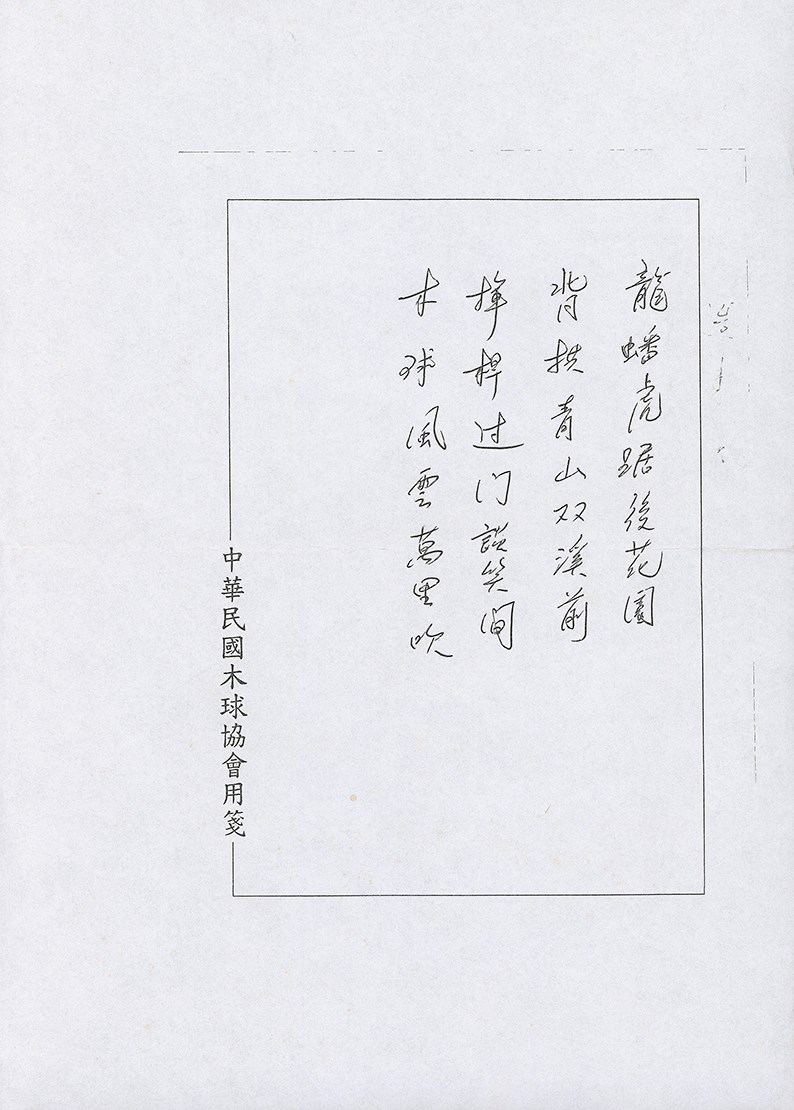 龍蟠虎踞後花園
背拱青山双溪前
揮桿过门談笑间
木球風雲萬里吹
中華民國木球協會用箋